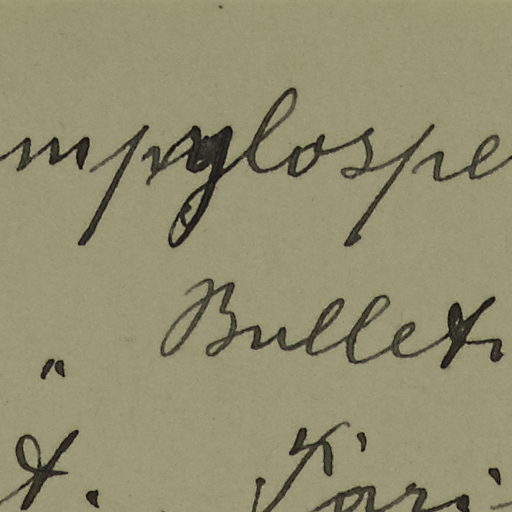 mpylospe
" Bulleti
t. Pari